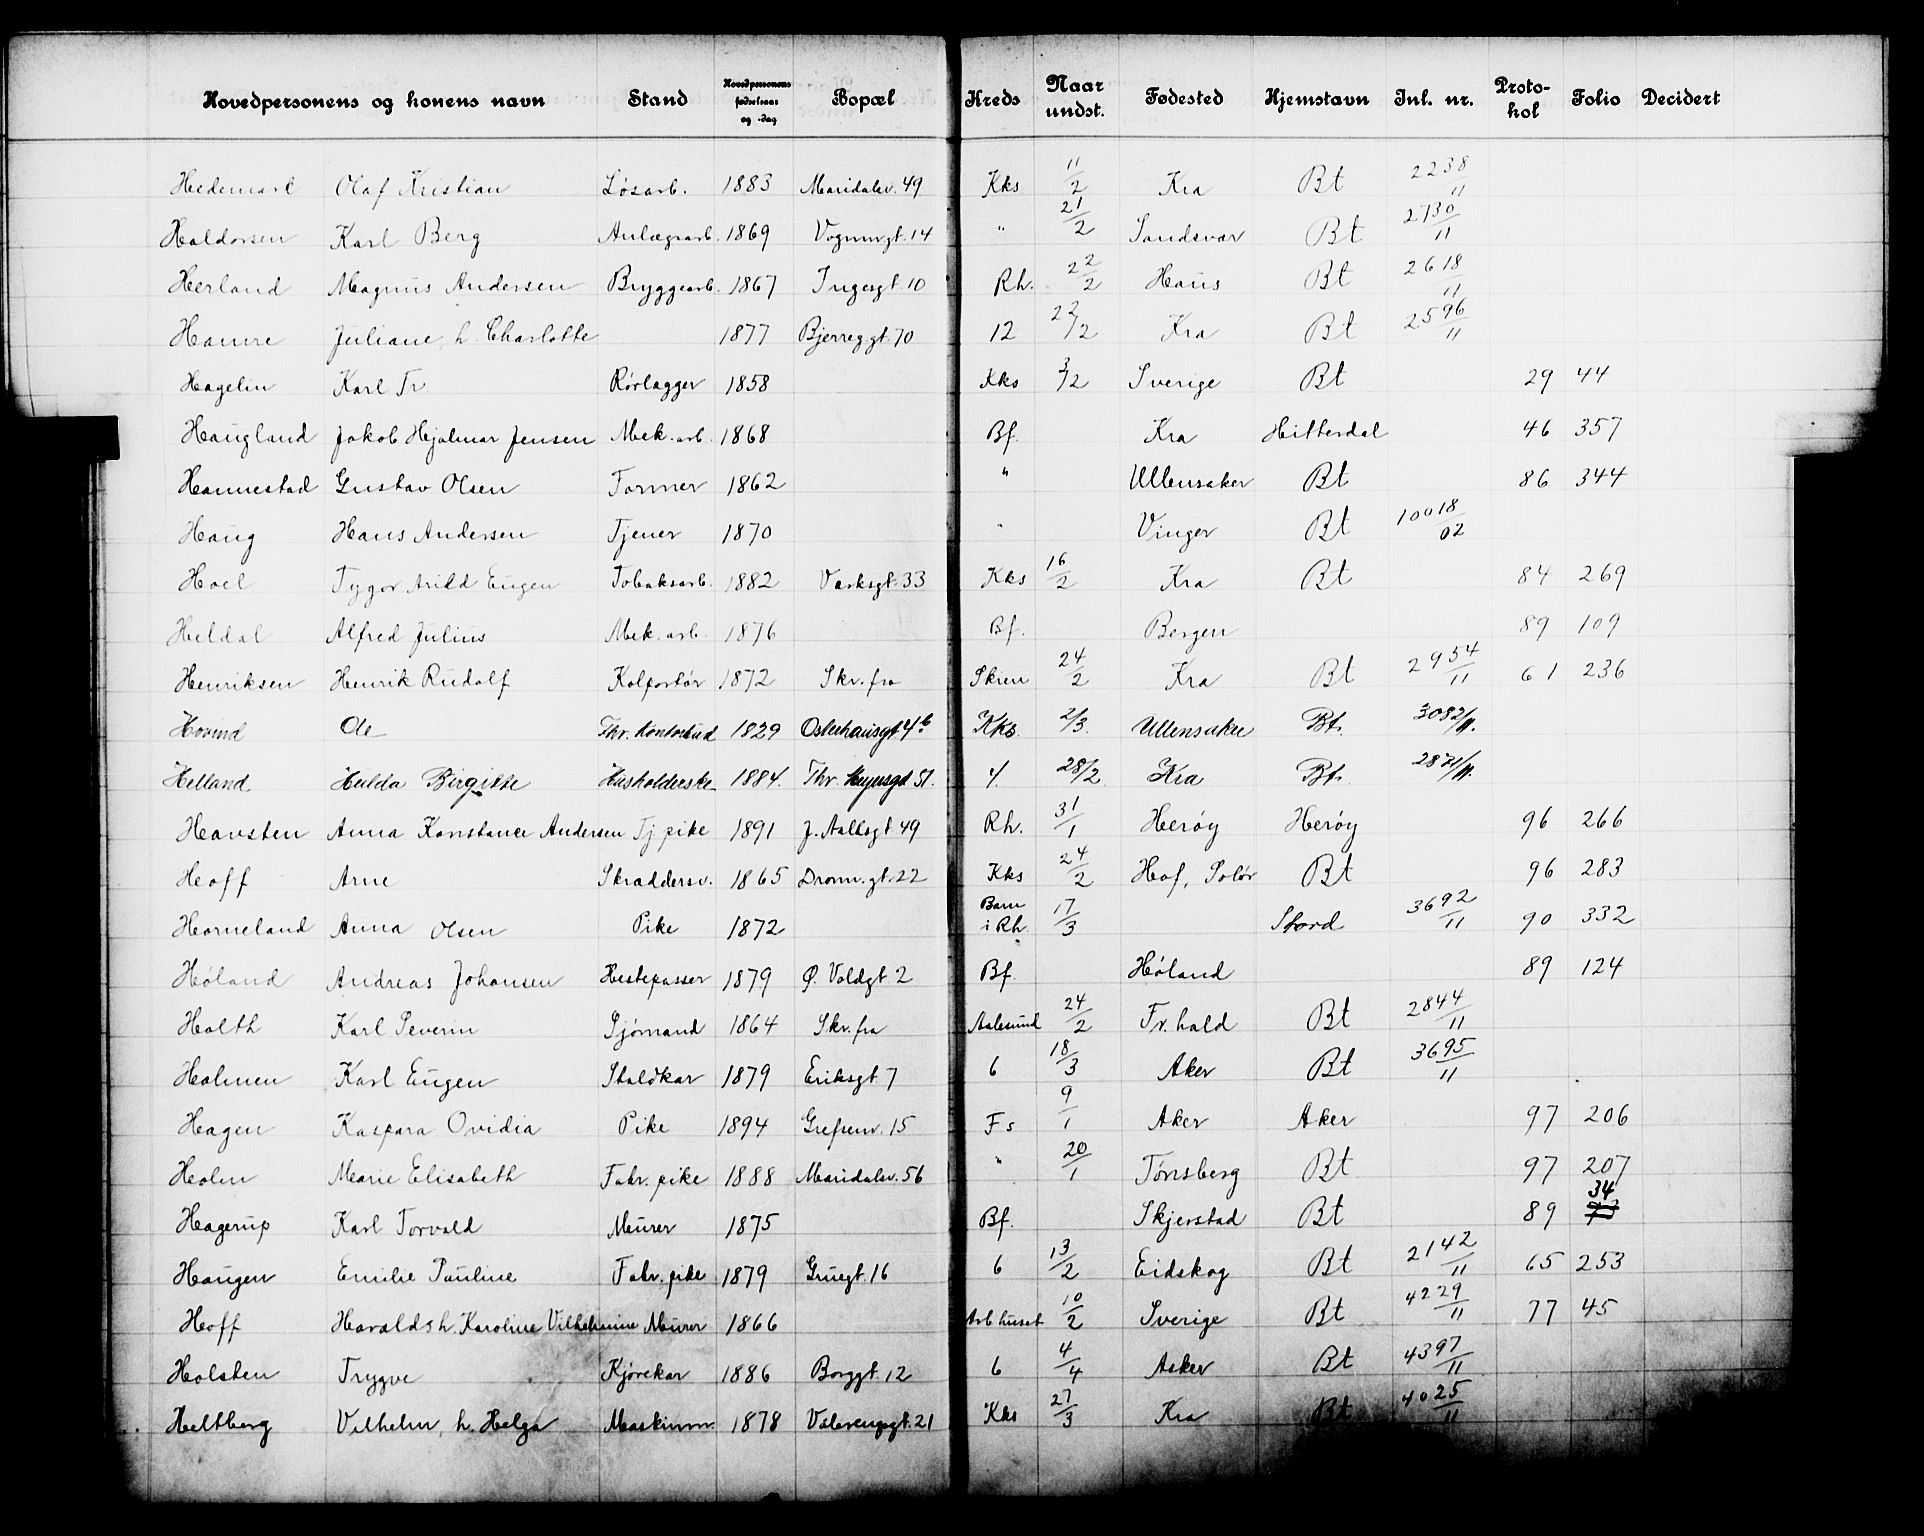 Hovedpersonens og konens navn Stand Hovedpersonens fødselsaar og -dag Bopæl Kreds Naar undst. Fødested Hjemstavn Inl. nr. Protokol Folio Decidert
Hedemark Olaf Kristian Løsarb. 1883 Maridalsv. 49 Kks 11/2 Kra Bt 2238/11
Haldorsen Karl Berg Anlægsarb. 1869 Vognmgt. 14 " 21/2 Sandsvær Bt 2730/11
Herland Magnus Andersen Bryggearb. 1867 Ingesgt. 10 Rh. 22/2 Haus Bt 2618/11
Hamre Juliane, h. Charlotte 1877 Bjerreggt. 70 12 22/2 Kra Bt 2596/11
Hagelin Karl Fr. Rørlægger 1858 Kks 3/2 Sverige Bt 29 44
Haugland Jakob Hjalmar Jensen Mek. arb. 1868 Bf. Kra Hitterdal 46 357
Hannestad Gustav Olsen Former 1862 " Ullensaker Bt 86 344
Haug Hans Andersen Tjener 1870 " Vinger Bt 10018/02
Hoel Arild Eugen Tobaksarb. 1882 Verksgt. 33 Kks 16/2 Kra Bt 84 269
Heldal Alfred Julius Mek. arb. 1876 Bf. Bergen 89 109
Henriksen Henrik Rudolf Kolportør 1872 Skr. fra Skien 24/2 Kra Bt 2954/11 61 236
Hovind Ole Fhv. Kontorbud 1829 Osterhausgt 4b Kks. 2/3. Ullensaker Bt. 3082/11.
Helland Hulda Birgitte Husholderske 1884. Thv. Meyersgd 51. 4. 28/2 Kra Bt. 2871/11.
Havsten Anna Konstance Andersen Tj pike 1891 J. Aallsgt 49 Rh. 31/1 Herøy Herøy 96 266
Hoff Arne Skræddersv. 1865 Dronn. gt. 22 Kks 24/2 Hof, Solør Bt 96 283
Horneland Anna Olsen Pike 1872 Barn i Rh. 17/3 Stord 3692/11 90 332
Høland Andreas Johansen Hestepasser 1879 Ø. Voldgt 2 Bf. Høland 89 124
Holth Karl Severin Sjømand 1864 Skr. fra Aalesund 24/2 Fr. hald Bt 2844/11
Holmen Karl Eugen Staldkar 1879 Eriksgt 7 6 18/3 Aker Bt 3695/11
Hagen Kaspara Ovidia Pike 1894 Grefsenv. 15 Fs 9/1 Aker Aker 97 206
Holm Marie Elisabeth Fabr. pike 1888 Maridalsv. 56 " 20/1 Tønsberg Bt 97 207
Hagerup Karl Torvald Murer 1875 Bf. Skjerstad Bt 89 34
Haugen Emilie Pauline Fabr. pike 1879 Gruegt. 16 6 13/2 Eidskog Bt 2142/11 65 253
Hoff Harald h. Karoline Vilhelmine Murer 1866 Arb huset 10/2 Sverige Bt 4229/11 77 45
Holsten Trygve Kjørekar 1886 Borggt. 12 6 4/4 Asker Bt 4397/11
Heltberg Vilhelm, h. Helga Maskinm. 1878 Vålerengsgt. 21 Kks 27/3 Kra Bt 4025/11